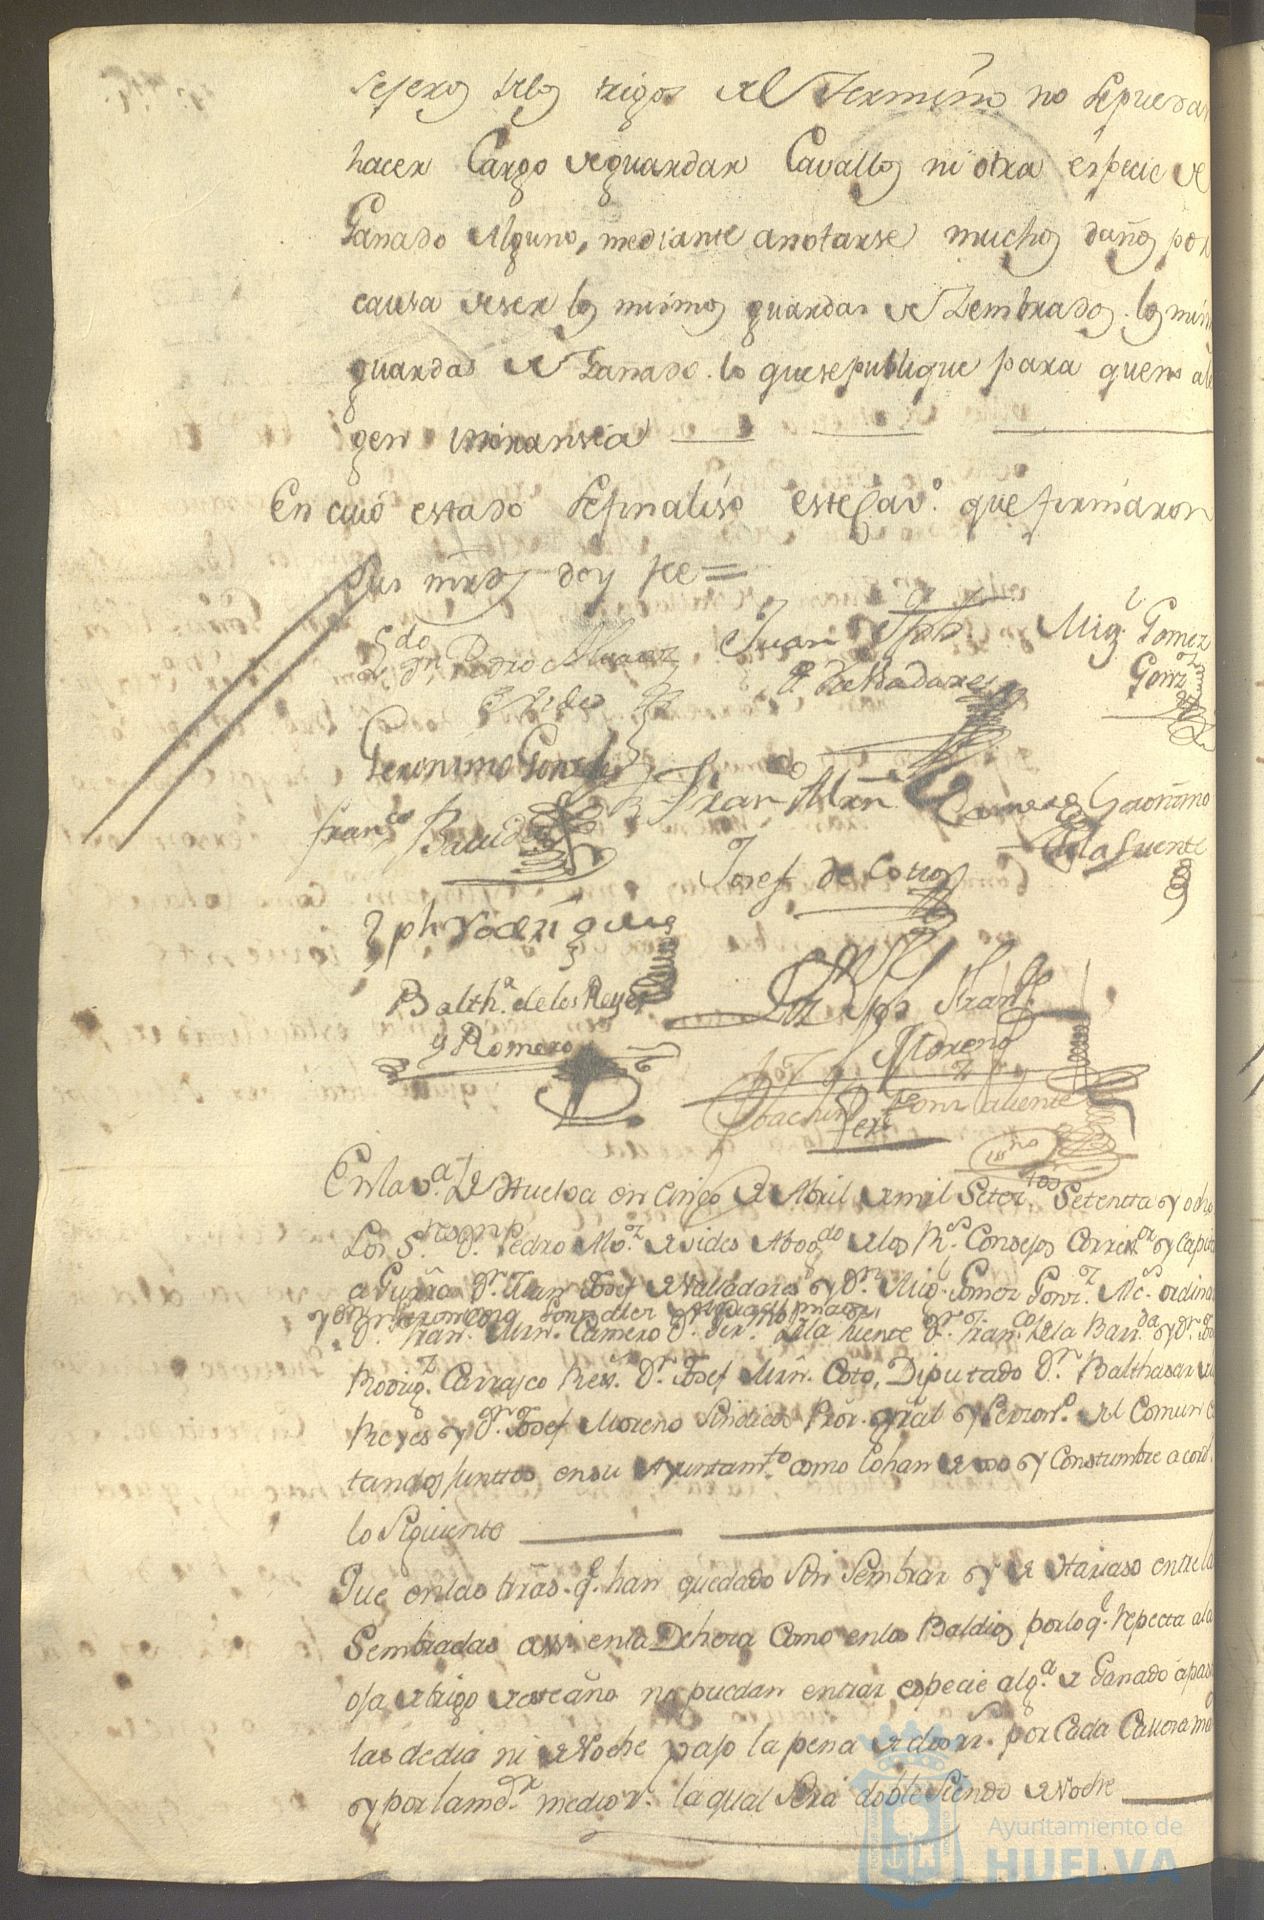 seseros delos trigos del Termino no sepueda
hacer Cargo deguardar Cavallos ni otra especie de
Ganado Alguno, mediante anotarse muchos daños por
causa deser los mismos guardas de Sembrados los mism
guardas de Ganado. lo quesepublique para queno ale
gen ignoransia
En cuio estado sefinaliso estecav.º que firmaron
sus mrds doy fee =
L.do Dn. Pedro Alvarez
Juan Jph.
Mig.l Gomez
Gonz
de Valladares
Geronimo Gonzalez
Fran.co Mrn Camero
Geronimo
dela Fuente
Fran.co Barrida
Josef de Coto
Jph Rodrigues
Balth.r delos Reyes
y Romero
Jph Fran.co
Moreno
Joachin Perez
En la v.a de Huelva en cinco de Abril de mil Setez.tos Setenta y ocho
Los S.res D.n Pedro Alv.z de vides Abog.do delos R.s Consejos Correx.or y Capit
a Guerra D.n Juan Josef de Valladares y D.n Mig.l Gomez Gonz.z Alc.s ordina
y D.n Geronimo Gonzalez Alguacil maior
D.n Fran.co Mrn. Camero D.n Ger.mo dela fuente D.n Fran.co dela Barr.da y D.n Jo
Rodrig.z Carrasco Rex.s D.n Josef Mrn. Coto, Diputado D.n Balthasar de l
Reyes y D.n Josef Moreno Sindicos Pror. gral y Person.o del Comun e
tando juntos en su Ayuntam.to como lo han de uso y Constumbre acord
lo Siguiente
Que en las tras. q.e han quedado Sin Sembrar y de Hariaso entre la
Sembradas assi en la Dehesa Como en los Baldios por lo q.e respecta ala
oja de trigo de este año no puedan entrar especie alg.a de Ganado a pas
las de dia ni de Noche vajo la pena de dos rr.s por Cada Cavesa ma
y por la men.r medio r.l la qual sera doble Siendo de Noche
Ayuntamiento de
HUELVA